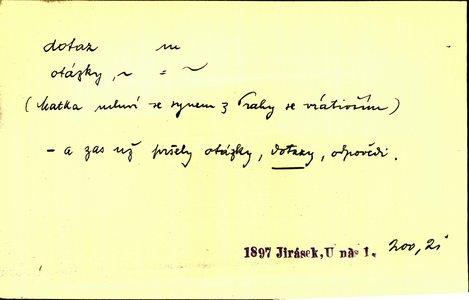 dotaz m
otázky, ~ = ~
(Matka mluví se synem z Prahy se vrátivším)
- a zas už pršely otázky, dotazy, odpovědi.
1897 Jirásek, U nás 1. 200, 21